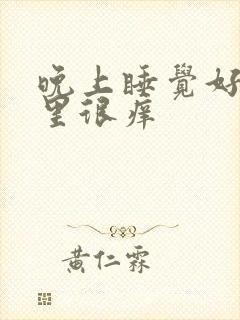 晚上睡覺好
里很痒
黄仁霖